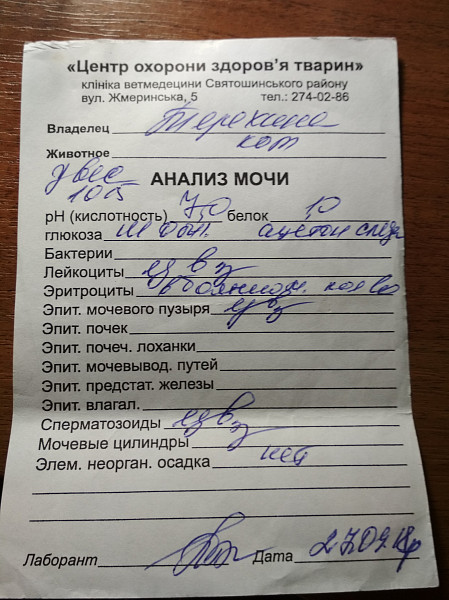 «Центр охорони здоров'я тварин»
клініка ветмедецини Святошинського району
вул. Жмеринська, 5 тел.: 274-02-86
Владелец
Животное кот
АНАЛИЗ МОЧИ
рН (кислотность) 7,0 белок 1,0
глюкоза ацетон следы
Бактерии
Лейкоциты ед в п/з
Эритроциты в большом. кол-ве
Эпит. мочевого пузыря ед в п/з
Эпит. почек
Эпит. почеч. лоханки
Эпит. мочевывод. путей
Эпит. предстат. железы
Эпит. влагал.
Сперматозоиды ед в п/з
Мочевые цилиндры
Элем. неорган. осадка нет
Лаборант Дата